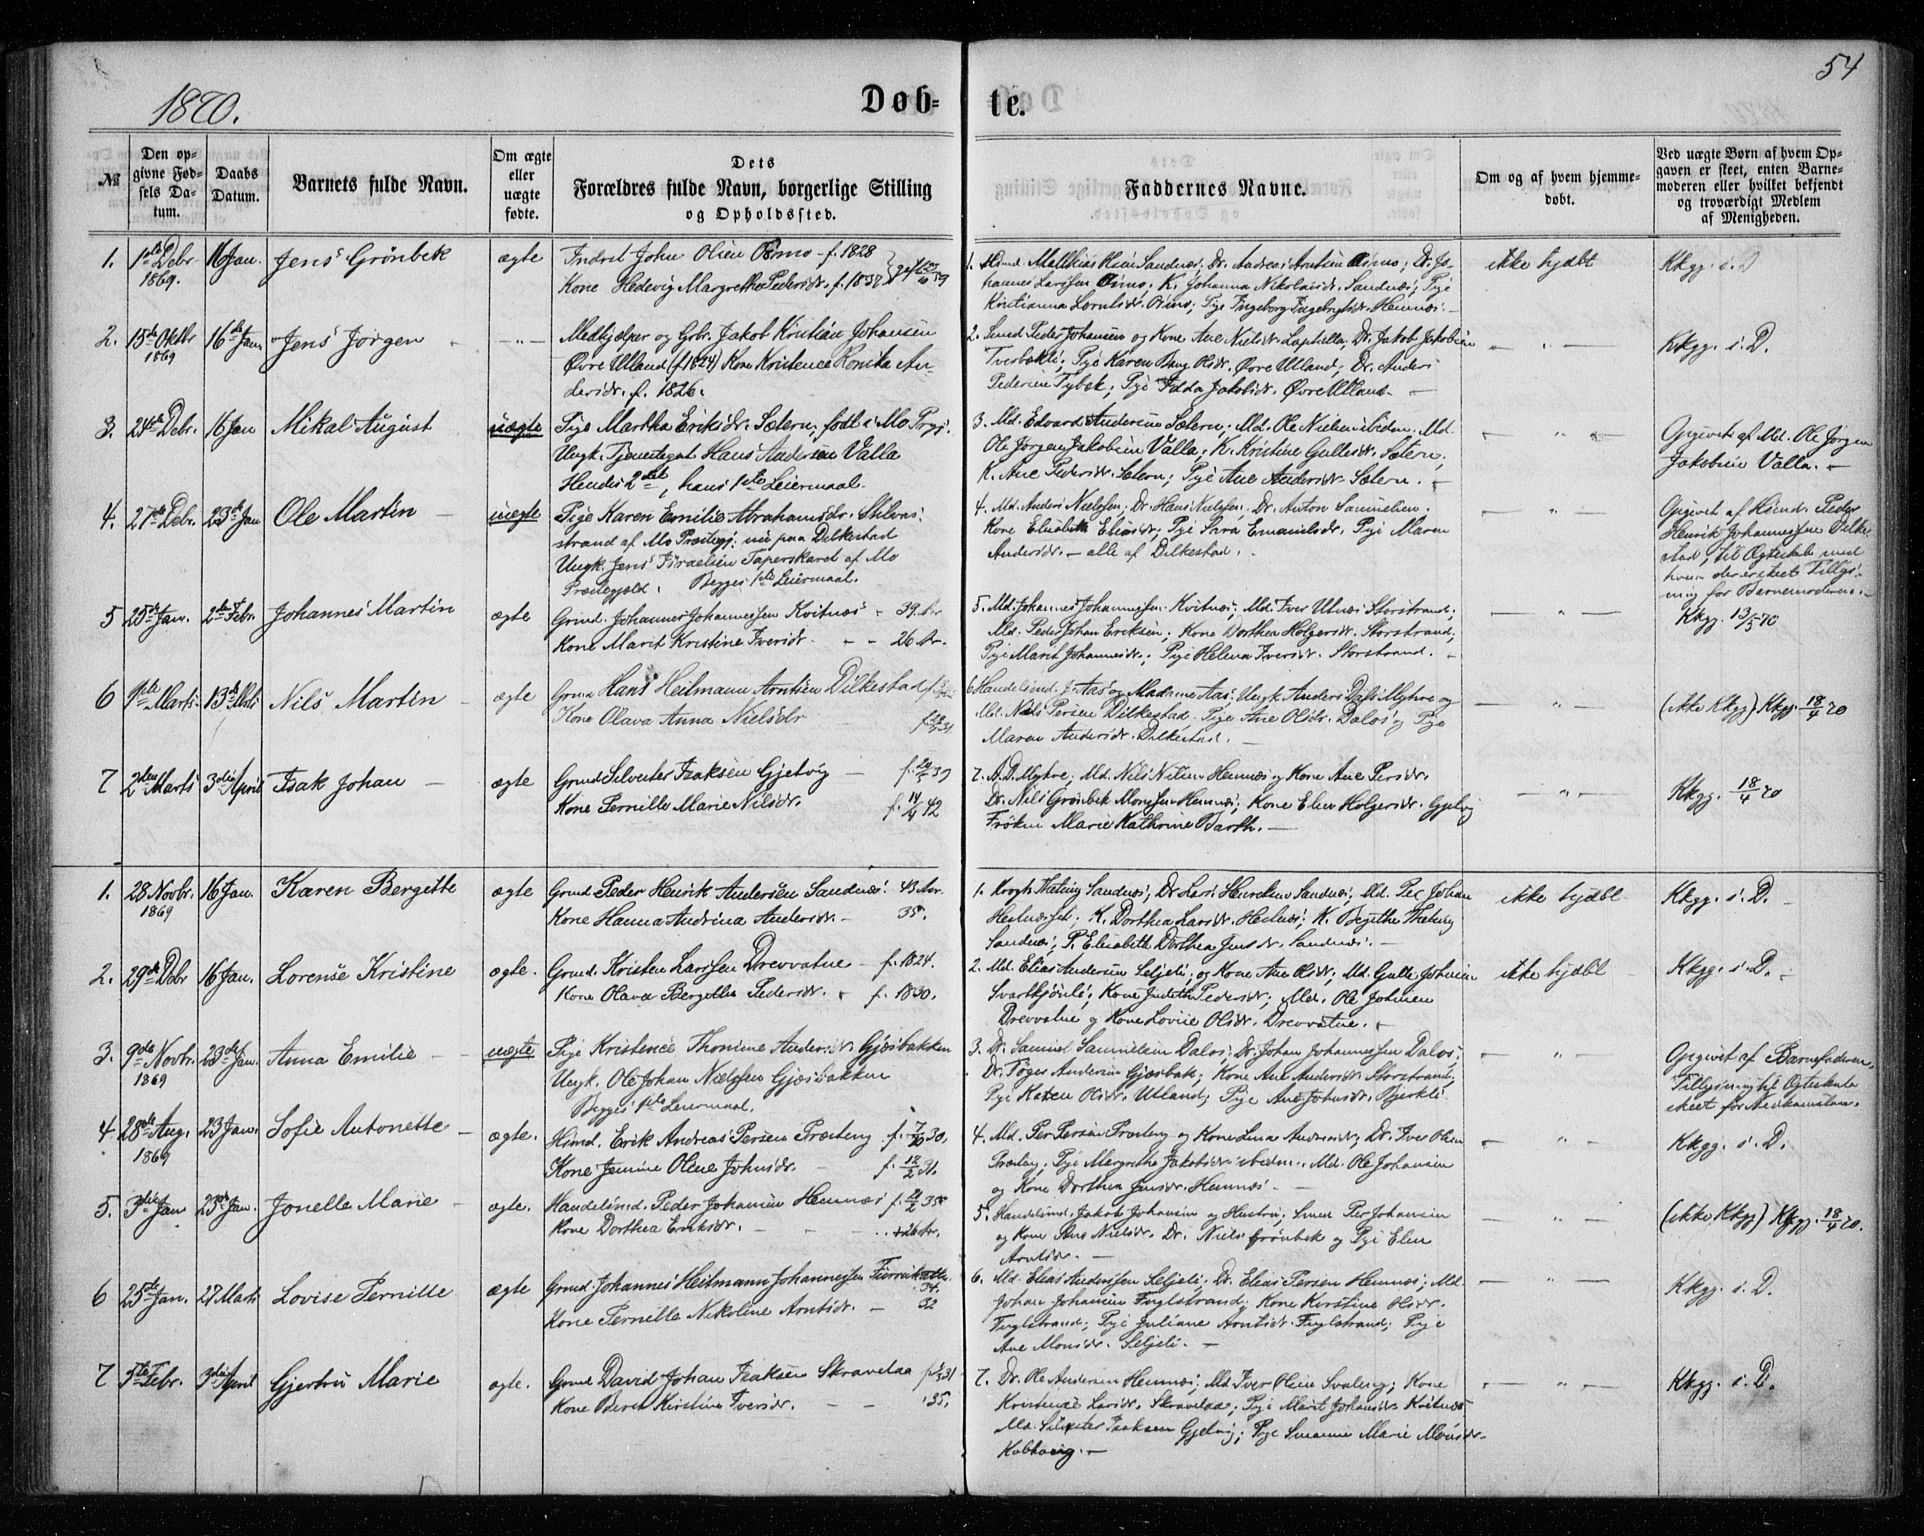 54
1870.
Døb-
te.
№
Den op-
givne Fød-
sels Da-
tum.
Daabs
Datum.
Barnets fulde Navn.
Om ægte
eller
uægte
fødte.
Dets
Forældres fulde Navn, borgerlige Stilling
og Opholdssted.
Faddernes Navne.
Om og af hvem hjemme-
døbt.
Ved uægte Børn af hvem Op-
gaven er skeet, enten Barne-
moderen eller hvilket bekjendt
og troværdigt Medlem
af Menigheden.
1.
1ste Debr
1869.
16 Jan.
Jens Grønbek
ægte
Indrst John Olsen f. 1828
Kone Hedevig Margrethe Pedersdr. f. 1837
Sandnæs; Dr. Andreas Arntsen
Larssen K. Johanna Nikolaisdr. Sandnæs; Pige
Kristianna Pige Ingeborg Hemnæs. -
ikke hjdbt
Kkgg. i. D
2.
15de Oktbr
1869
16de Jan.
Jens Jørgen
- " -
Medhjelper og Gbr. Jakob Kristian Johansen
Øvre Utland (f. 1824) Kone Kristence Konika An-
dersdr. f. 1826.
2. Smed Peder Johansen og Kone Ane Nielsdr. Dr. Jakob Jakobsen
Tverbakli; Pige Karen Olsdr. Øvre Utland; Dr. Anders
Pedersen Pige Jakobsdr. Øvre Utland. -
- " -
Kkgg. i. D.
3.
24de Debr.
16 Jan
Mikal August
uægte
Pige Martha Eriksdr. Sætern, født i Mo Prgj.
Ungk. Tjenestegut Hans Andersen Valla
Hendes 2det, hans 1ste Leiermaal.
3. Md. Edvard Andersen Sætern; Md. Ole Nielsen ibiden. Md.
Ole Jørgen Jakobsen Valla; K. Kristine Gullesdr. Sætern;
K. Ane Pedersdr. Sætern; Pige Ane Andersdr. Sætern. -
- " -
Opgivet af Md. Ole Jørgen
Jakobsen Valla. -
4.
27de Debr.
23de Jan
Ole Martin
uægte
Pige Karen Emilie Abrahamsdr.
strand af Mo Præstegj. nu paa Dilkestad
Ungk. Jens Israelsen Taperskaret af Mo
Præstegjeld. Begges 1ste Leiermaal.
4. Md. Anders Nielssen; Dr. Hans Nielssen; Dr. Anton Samuelsen.
Kone Elisabeth Eliasdr; Pige Sara Emanuelsdr. Pige Maren
Andersdr. - alle af Dilkestad. -
- " -
Opgivet af Peder
Henrik Johannessen Dilke-
stad, til Ægteskab med
hvem der er skeet Tillys-
ning for Barnemoderen. -
5
25de Jan.
2den Febr.
Johannes Martin
ægte
Grmd. Johannes Johannessen Kvitnæs - 39. Ar
Kone Marit Kristine Iversdr. - - 26 Ar.
5. Md. Johannes Johannessen Kvitnæs; Md. Iver Utnæs Storstrand;
Md. Peder Johan Eriksen; Kone Dorthea Holgersdr. Storstrand;
Pige Marit Johannesdr.; Pige Helena Iversdr. Storstrand. -
- " -
Kkgg. 13/3 70
6
1ste Marts
13de Mts
Nils Martin
ægte
Grmd Hans Heitmann Arntsen Dilkestad
Kone Olava Anna Nielsdr
6. Handelsmd. J. Aas og Madame Aas; Ungk. Anders Dalos Myhre og
Md. Nils Persen Dilkestad. Pige Ane Olsdr. Dalos; Pige
Maren Andersdr. Dilkestad. -
- " -
(ikke Kkgg) Kkgg. 18/4 70
7
2den Marts
3die April
Isak Johan
ægte
Grmd Silvester Isaksen Gjelvig - 39
Kone Pernille Marie Nilsdr. f. 14/4 42
7. A. D. Myhre; Md. Nils Nilsen Hemnæs og Kone Ane Persdr.
Dr. Nils Grønbek Monssen Hemnæs; Kone Elen Holgersdr. Gjelvig
Frøken Marie Kathrine Barth. -
- " -
Kkgg. 18/4 70
1.
28 Novbr.
1869
16 Jan.
Karen Bergitte
ægte
Grmd. Peder Henrik Andersen Sandnæs. 43 Aar.
Kone Hanna Andrina Andersdr. - 35.
1. Sandnæs; Dr. Lars Henriksen Sandnæs; Md. Per Johan
K. Dorthea Larsdr. K. Bergithe
Sandnæs; P. Elisabeth Dorthea Jensdr. Sandnæs. -
ikke hjdbt.
Kkgg. i. D. -
2.
29de Debr
16 Jan.
Lorense Kristine
ægte.
Grmd. Kristen Larssen Drevvatne - f. 1824.
Kone Olava Bergitte Pedersdr. - f. 1830.
2. Md. Elias Andersen Seljeli; og Kone Ane Olsdr; Md. Gulle Johnsen
Kone Judith Pedersdr; Md. Ole Johnsen
Drevvatne og Kone Lovise Olsdr. Drevvatne. -
ikke hjdbt
Kkgg. i. D. -
3.
9de Novbr.
1869
23de Jan.
Anna Emilie
uægte
Pige Kristence Thomine Andersdr. Gjøsbakken
Ungk. Ole Johan Nielssen Gjøsbakken
Begges 1ste Leiermaal.
3. Dr. Samuel Samuelsen Dalos; Dr. Johan Johannessen Dalos;
Dr. Tøger Andersen Gjøsbak; Kone Ane Andersdr. Storstrand;
Pige Karen Olsdr. Utland; Pige Ane Johnsdr. Bjerkli.
- " -
Opgivet af Barnefaderen,
Tillysning til Ægteskab
skeet for Vedkommende.
4
28de Aug.
1869
23 Jan.
Sofie Antonette
ægte.
Hsmd. Erik Andreas Persen Præsteng f. 7/10 30.
Kone Jemine Oline Johnsdr. - f. 12/2 31.
4. Md. Per Persen Præsteng og Kone Lina Andersdr; Dr. Iver Olsen
Præsteng; Pige Margrethe Jakobsdr. ibedem. Md. Ole Johansen
og Kone Dorthea Jensdr. Hemnæs. -
- " -
Kkgg. i. D.
5.
3die Jan
23de Jan.
Jonelle Marie
ægte.
Handelsmd. Peder Johansen Hemnæs 35
Kone Dorthea Eriksdr. - - 26 Ar.
5. Handelsmd. Jakob Johansen og Hustru; Smed Per Johansen
og Kone Ane Nielsdr. Dr. Niels Grønbek og Pige Elen
Arntsdr. -
- " -
(ikke Kkgg) Kkgg. 18/4 70.
6
25de Jan.
27 Marts
Lovise Pernille
ægte
Grmd. Johannes Heitmann Johannessen 34.
Kone Pernille Nikoline Arntsdr. - 32
6. Md. Elias Anderssen Seljeli; Dr. Elias Persen Hemnæs; Md.
Johan Johansen Fuglstrand; Kone Kirstine Olsdr.
Fuglstrand; Pige Juliane Arntsdr. Fuglstrand; Pige
Ane Monsdr. Seljeli. -
- " -
Kkgg. i. D.
7
5te Febr.
3die April
Gjertru Marie
ægte.
Grmd David Johan Isaksen Skravelaa
Kone Beret Kirstine Iversdr. - - 35.
7. Dr. Ole Andersen Hemnæs; Md. Iver Olsen Svaleng; Kone
Kristence Larsdr. Skravelaa; Pige Marit Johansdr. Kvitnæs
Md. Silvester Isaksen Gjelvig; Pige Susanne Marie Monsdr.
Kobhaug. -
- " -
Kkgg. i. D.